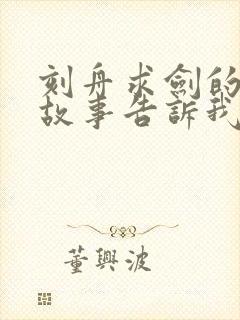 刻舟求劍的
故事告訴我
董興波